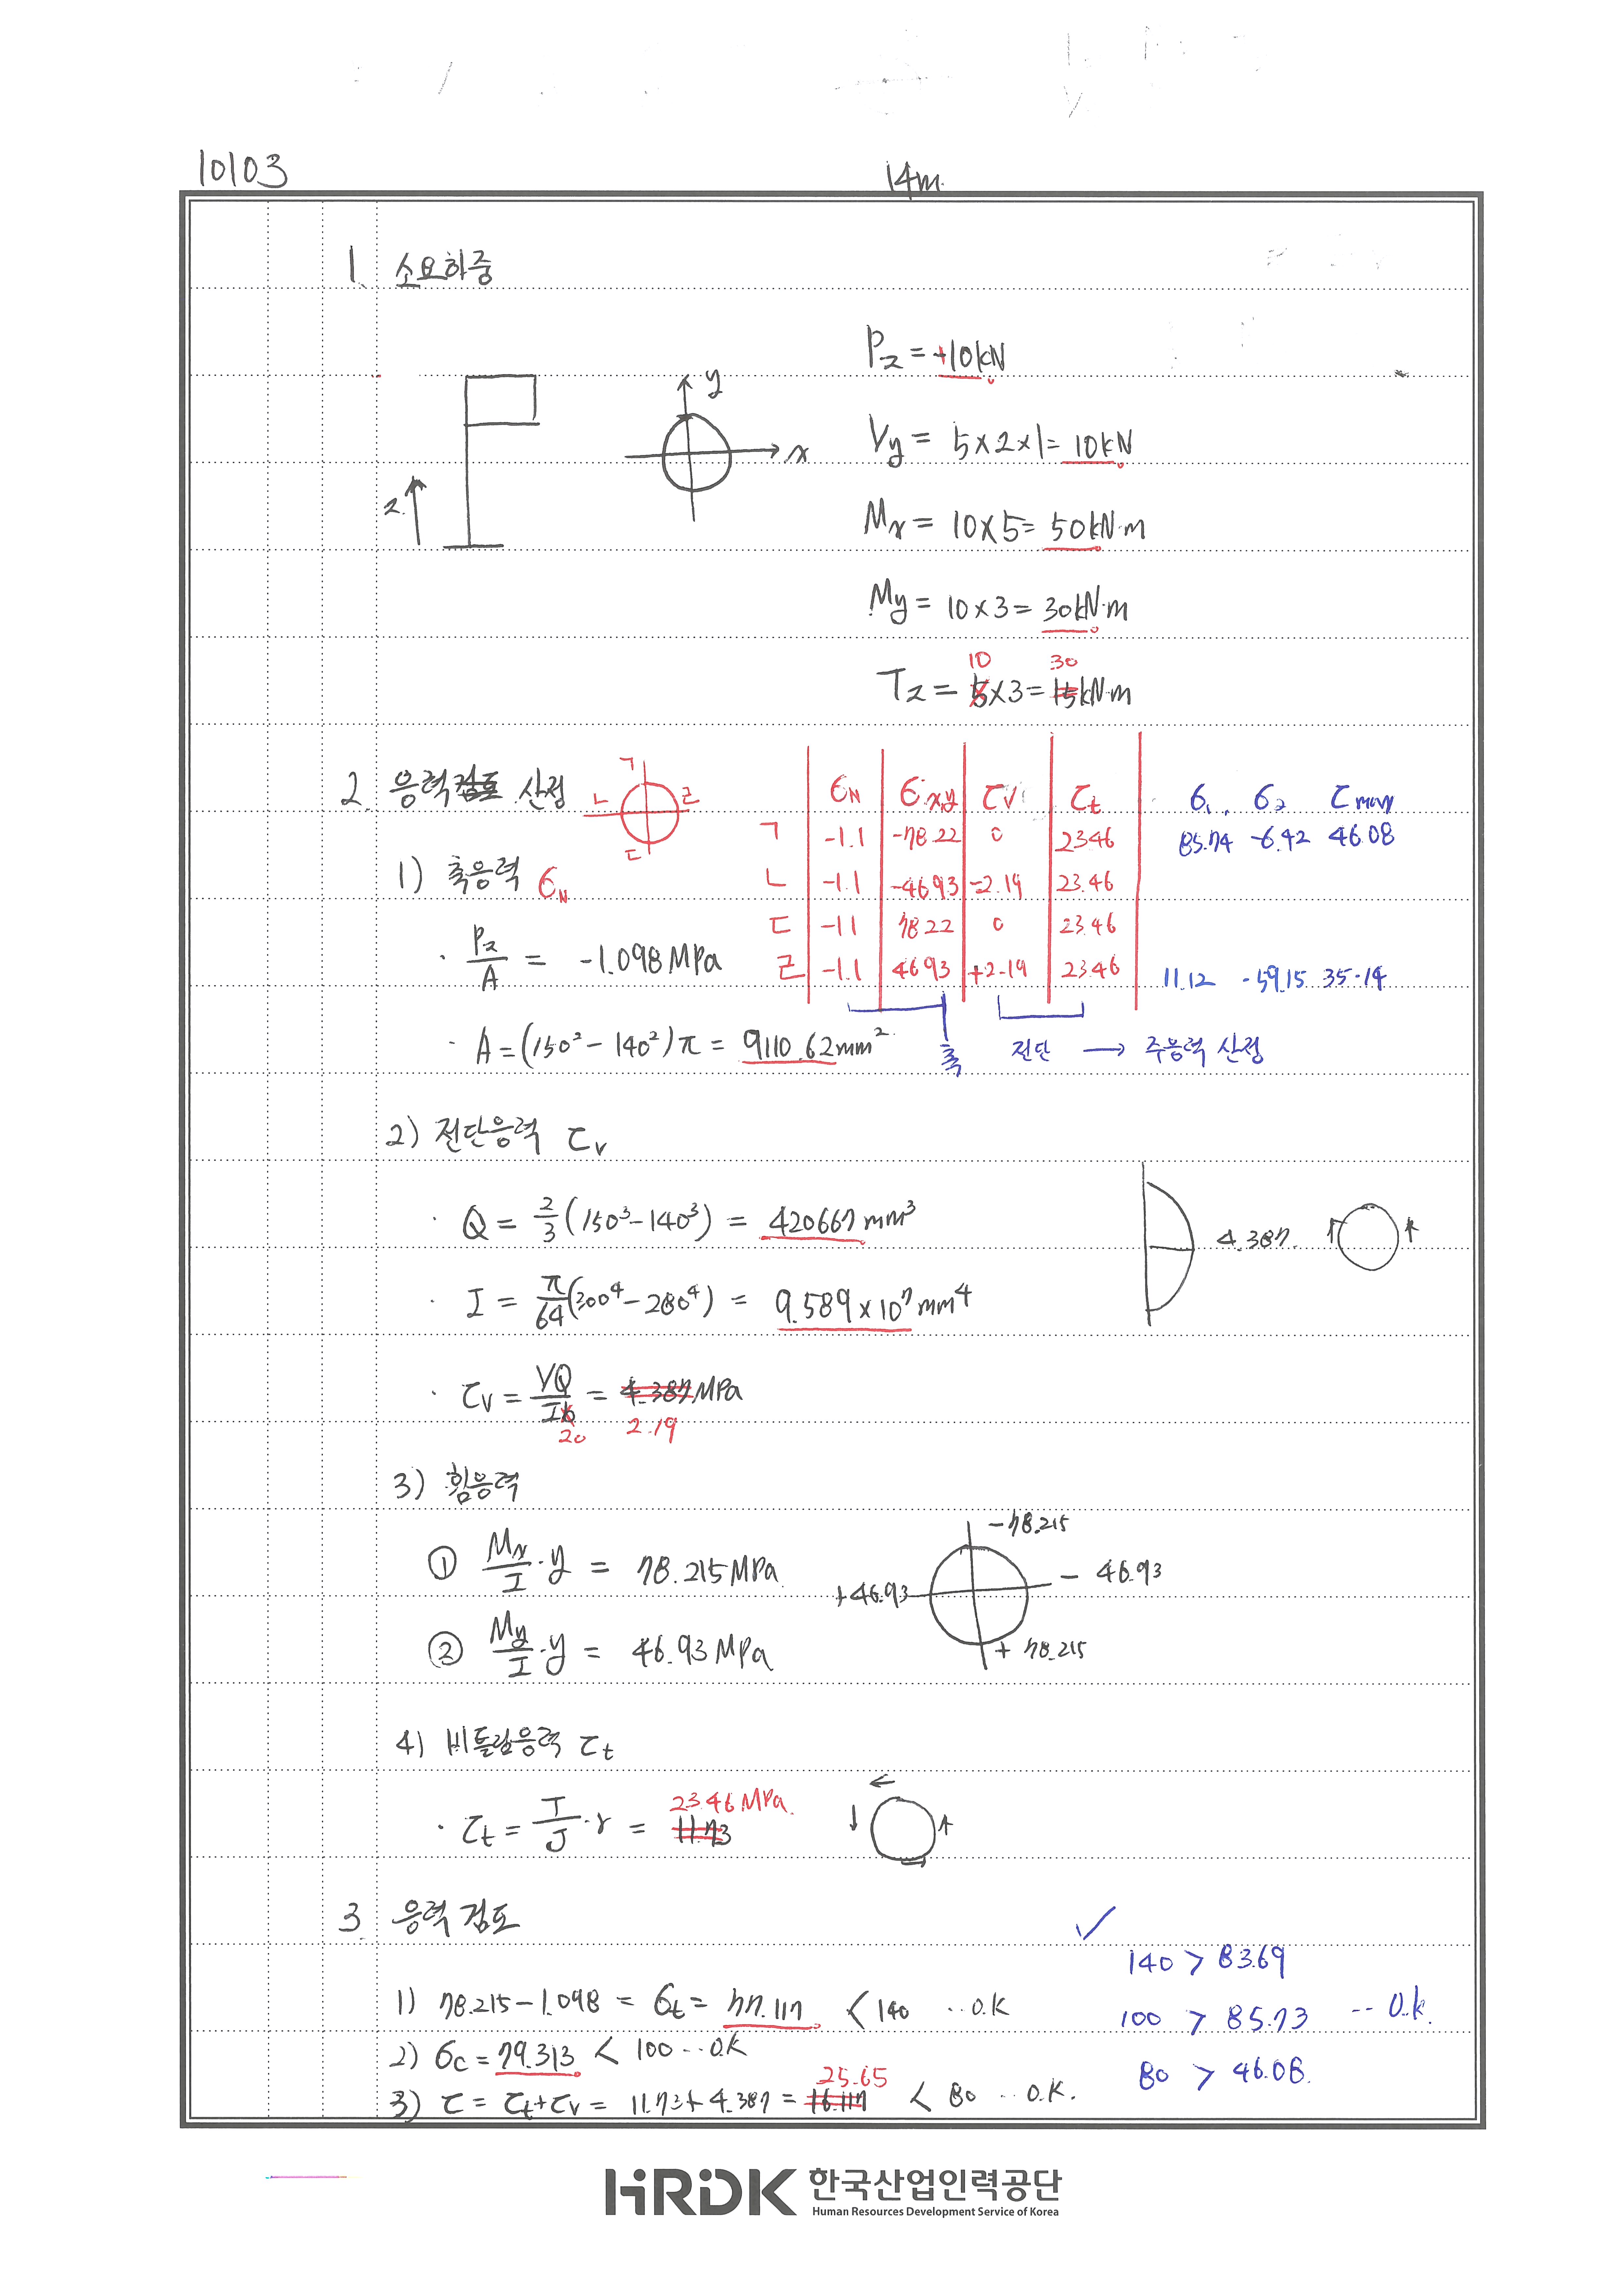 10103
14m.
1. 소요하중
P_z = +10kN
y
x
z
V_y = 5×2×1 = 10kN
M_x = 10×5 = 50kN·m
M_y = 10×3 = 30kN·m
10 30
T_z = 5×3 = 15kN·m
2. 응력검토 산정
ㄱ
ㄴ ㄹ
ㄷ
σ_N σ_xy τ_V τ_t σ_1, σ_2 τ_max
ㄱ -1.1 -78.22 0 23.46 85.74 -6.42 46.08
ㄴ -1.1 -46.93 -2.19 23.46
ㄷ -1.1 78.22 0 23.46
ㄹ -1.1 46.93 +2.19 23.46 11.12 -59.15 35.14
축 전단 → 주응력 산정
1) 축응력 σ_N
· P_z/A = -1.098 MPa
· A = (150² - 140²)π = 9110.62mm²
2) 전단응력 τ_v
· Q = 2/3 (150³ - 140³) = 420667 mm³
4.387.
· I = π/64 (300⁴ - 280⁴) = 9.589 × 10⁷ mm⁴
· τ_v = VQ/Ib = 4.387 MPa
20 2.19
3) 휨응력
① M_x/I · y = 78.215 MPa
② M_y/I · y = 46.93 MPa
-78.215
+46.93 - 46.93
+ 78.215
4) 비틀림응력 τ_t
23.46 MPa.
· τ_t = T/J · r = 11.73
3 응력 검토
1) 78.215 - 1.098 = σ_t = 77.117 < 140 ·· O.K
2) σ_c = 79.313 < 100 ·· O.K
25.65
3) τ = τ_t + τ_v = 11.73 + 4.387 = 16.117 < 80 ·· O.K.
✓
140 > 83.69
100 > 85.73 -- O.K.
80 > 46.08.
HRDK 한국산업인력공단
Human Resources Development Service of Korea